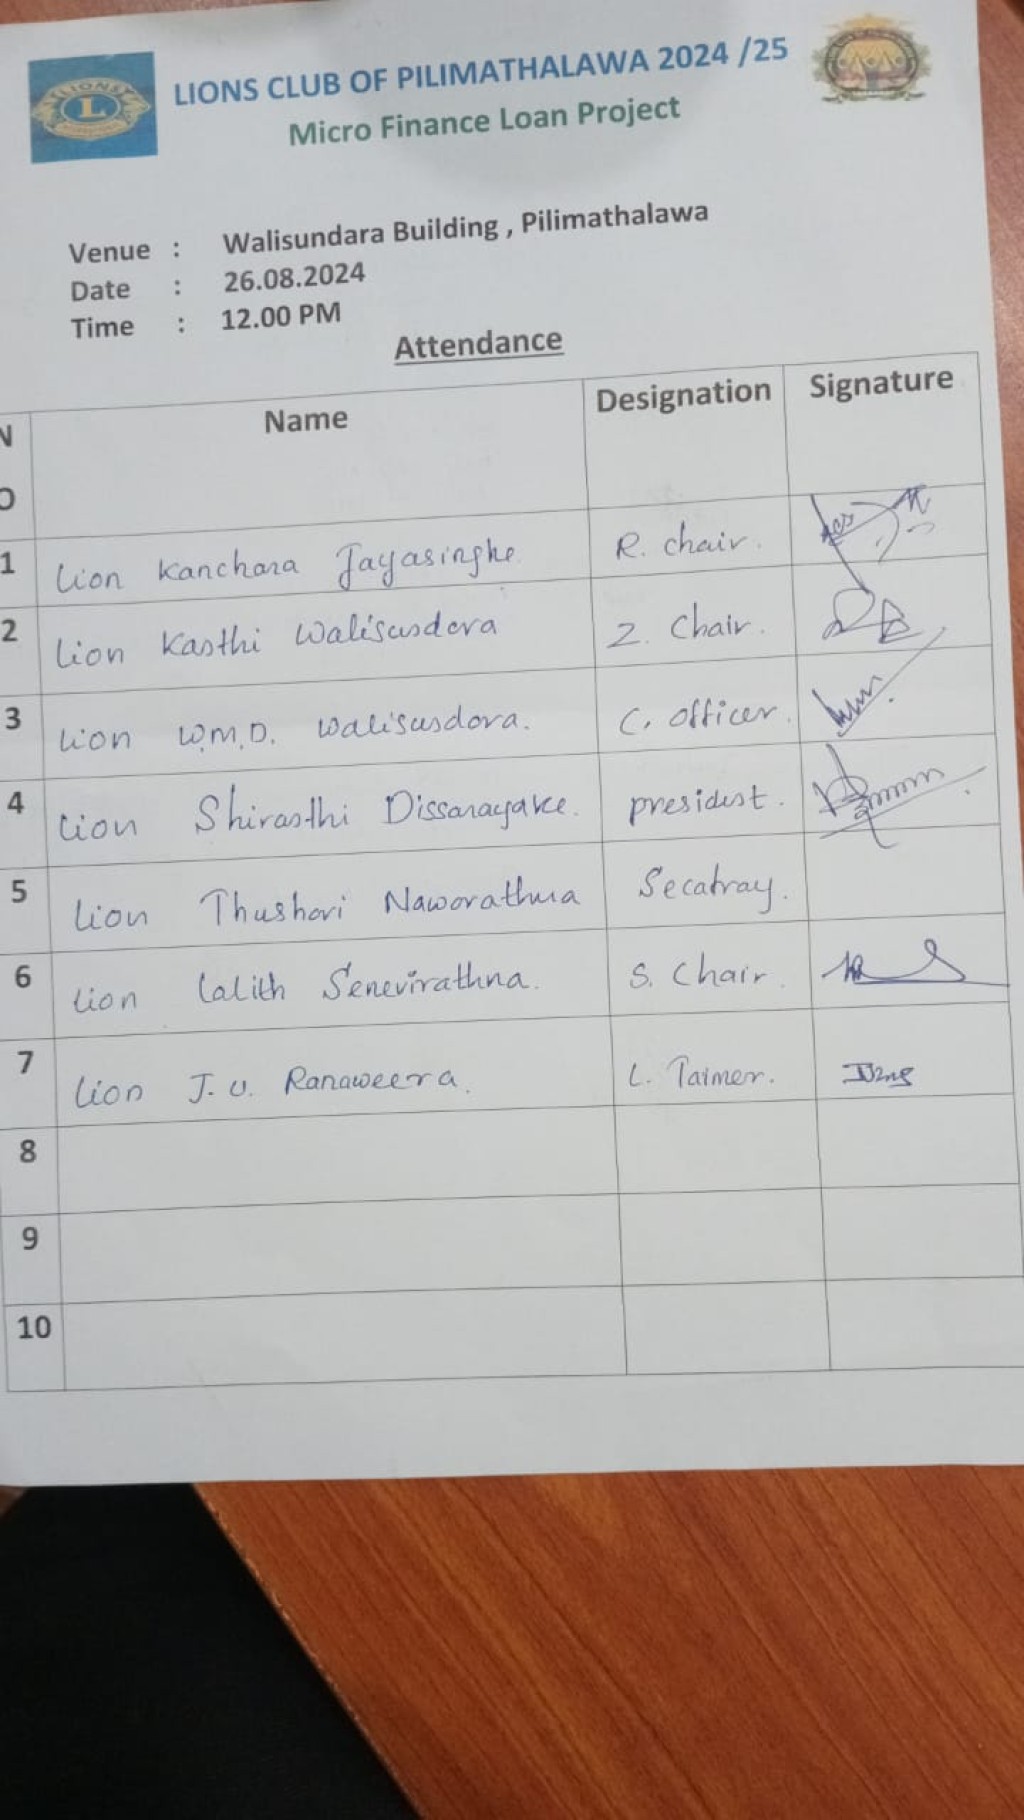 LIONS
L
LIONS CLUB OF PILIMATHALAWA 2024 /25
Micro Finance Loan Project
Venue : Walisundara Building , Pilimathalawa
Date : 26.08.2024
Time : 12.00 PM
Attendance
NO Name Designation Signature
1 Lion Kanchana Jayasinghe R. chair.
2 Lion Kasthi Walisundera Z. Chair.
3 Lion W.M.D. Walisundora. C. officer.
4 Lion Shiranthi Dissanayake. president.
5 Lion Thushari Naworathna Secatray.
6 Lion Lalith Senevirathna. S. Chair.
7 Lion J. U. Ranaweera. L. Taimer.
8
9
10